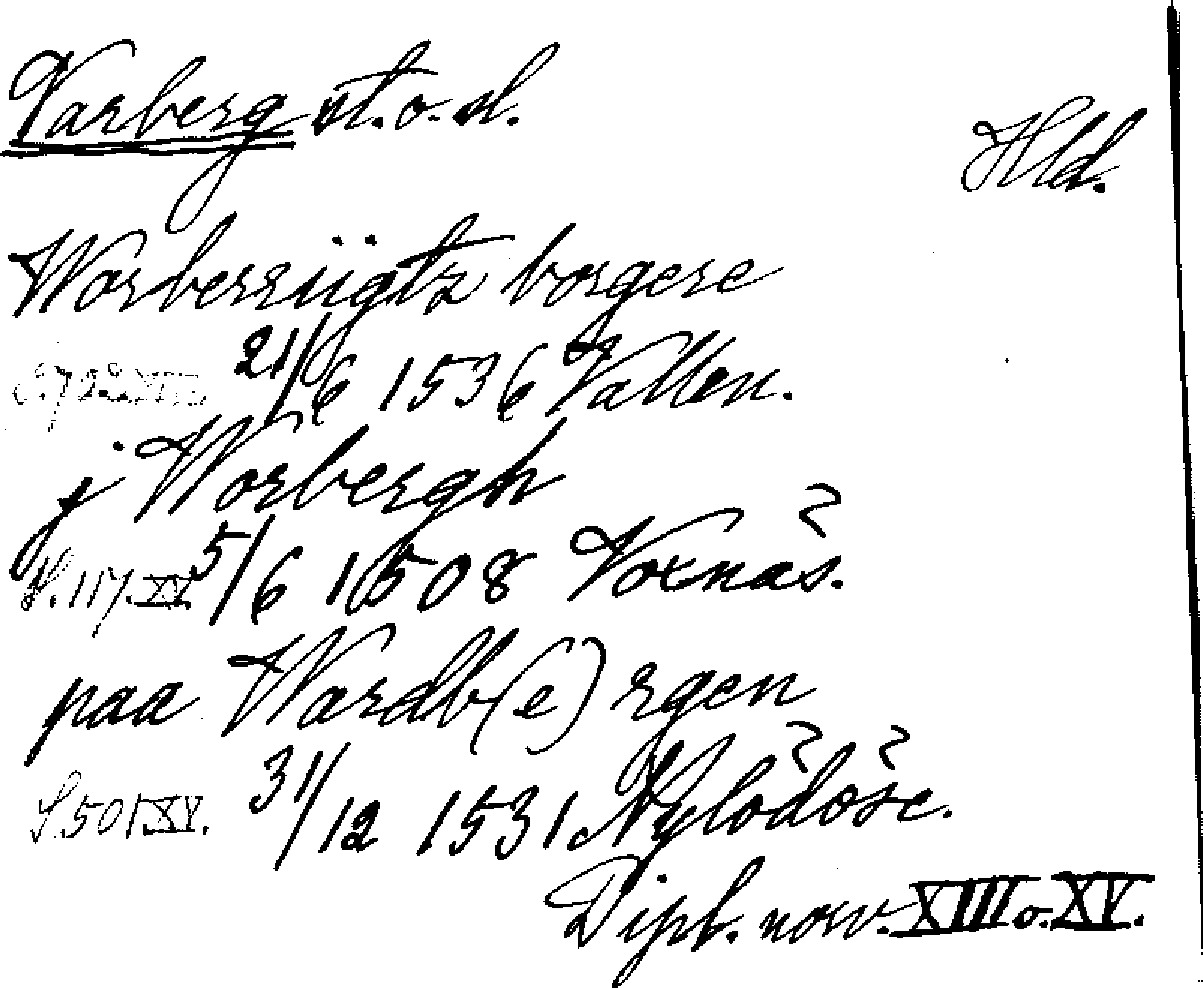 Varberg st. o. sl.
Hld.
Warberrüigtz borgere
21/6 1536 Vallen.
j Worbergh
S. 117. XV. 5/6 1508 Voxnäs.
paa Wardb(e)rgen
S. 501 XV. 31/12 1531 Nylödöse.
Dipl. norv. XIII o. XV.